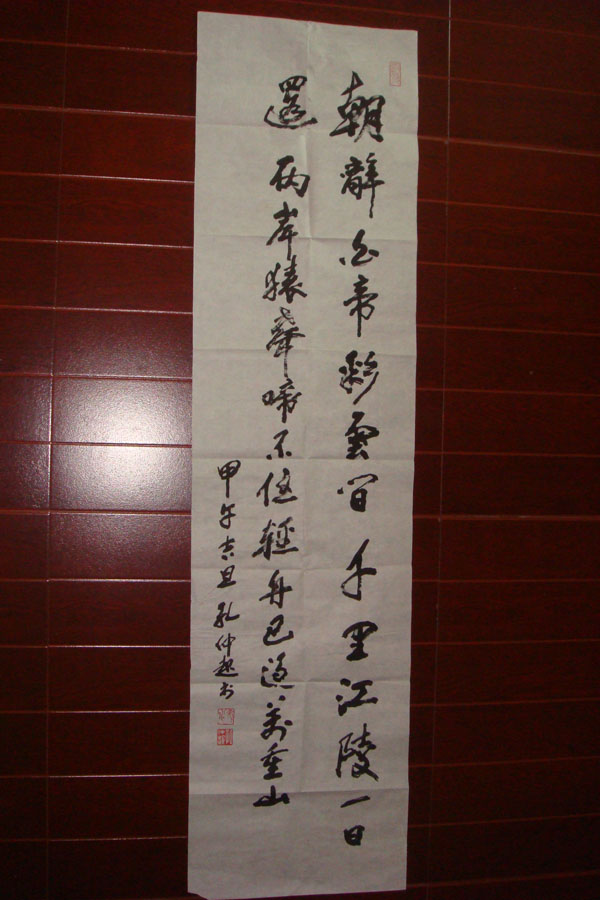 朝辭白帝彩雲間千里江陵一日
還兩岸猿聲啼不住輕舟已過萬重山
甲午吉旦孔仲起书